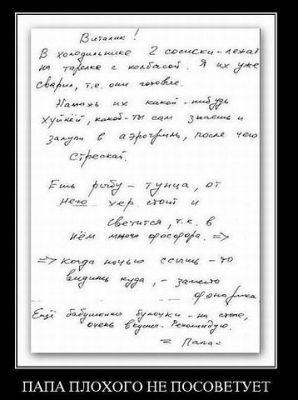 Виталик!
В холодильнике 2 сосиски - лежат
на тарелке с колбасой. Я их уже
сварил, т.е. они готовые.
Намажь их какой-нибудь
хуйнёй, какой - ты сам знаешь и
запузь в аэрогриль, после чего
стрескай.
Ешь рыбу - тунца, от
него хер стоит и
светится, т.к. в
нём много фосфора. =>
=> когда ночью ссышь - то
видишь куда, - заместо
фонарика
Ещё бабушкины булочки - на столе,
очень вкусные. Рекомендую.
= Папа =
ПАПА ПЛОХОГО НЕ ПОСОВЕТУЕТ